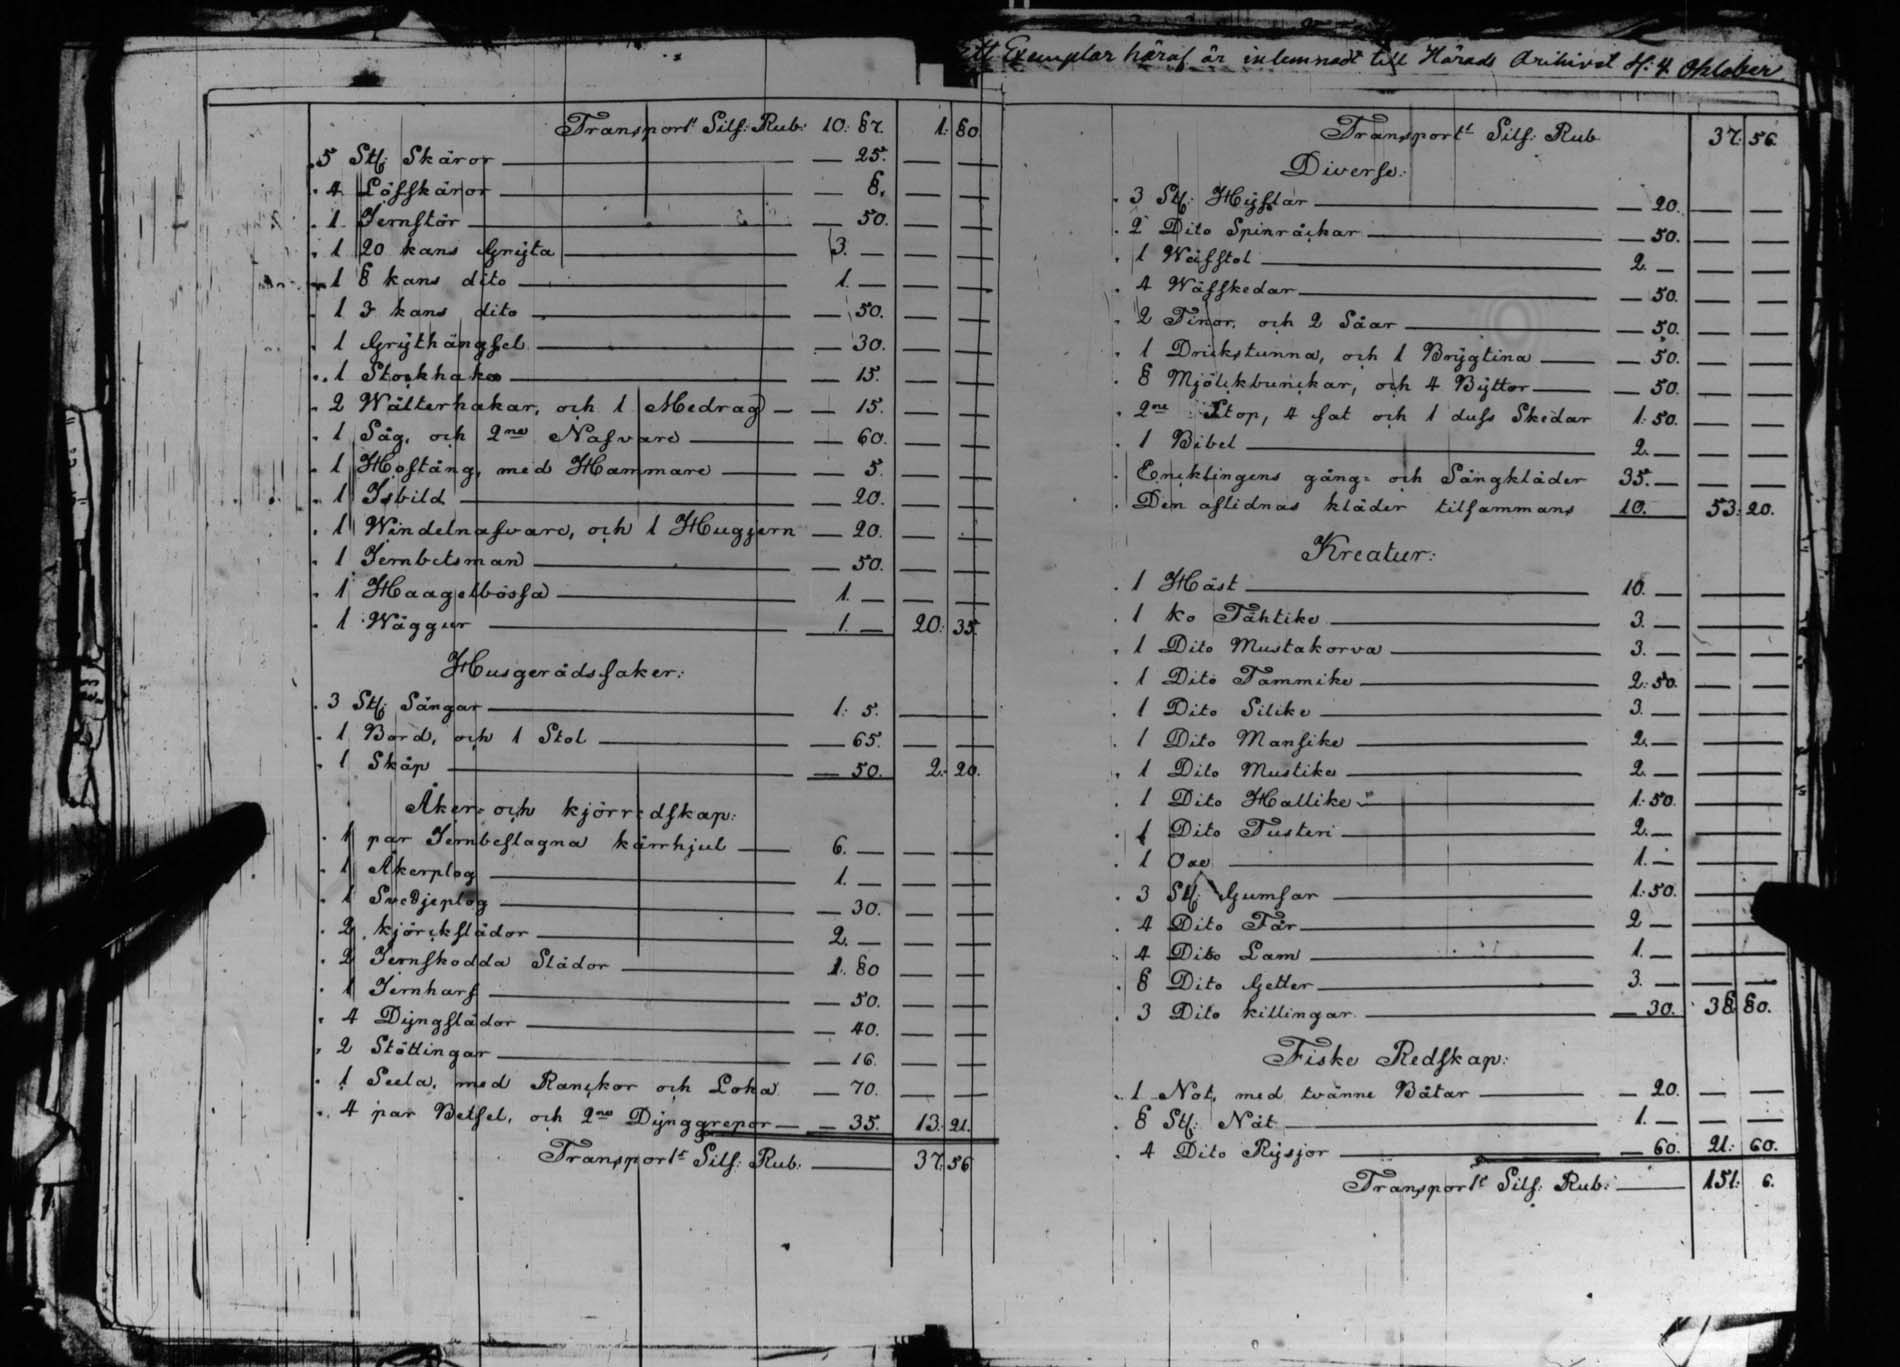 Ett Exemplar häraf är inlemnadt till Härads Arihivet d: 4 Oktober
Transport Silf: Rub: 10: 87. 1: 80.
5 St: Skäror — 25. — —
4 Löfskäror — 8. — —
1 Jernstör — 50. — —
1 20 kans Gryta 3. — — —
1 8 kans dito 1. — — —
1 3 kans dito — 50. — —
1 Grythängsel — 30. — —
1 Stockhake — 15. — —
2 Wälterhakar, och 1 Medrag — 15. — —
1 Såg, och 2ne Nafvare — 60. — —
1 Hoftång, med Hammare — 5. — —
1 Isbild — 20. — —
1 Windelnafvare, och 1 Huggjern — 20. — —
1 Jernbetsman — 50. — —
1 Haagelbössa 1. — — —
1 Wäggur 1. — 20: 35.
Husgerådssaker:
3 St: Sängar 1: 5. — —
1 Bord, och 1 Stol — 65. — —
1 Skåp — 50. 2: 20.
Åker- och kjörredskap:
1 par Jernbeslagna kärrhjul 6. — — —
1 Åkerplog 1. — — —
1 Svedjeplog — 30. — —
2 kjörkslädor 2. — — —
2 Jernskodda Slädor 1: 80 — —
1 Jernharf — 50. — —
4 Dyngslädor — 40. — —
2 Stöttingar — 16. — —
1 Seela, med Ranckor och Loka — 70. — —
4 par Betsel, och 2ne Dynggrepor — 35. 13: 21.
Transport Silf: Rub: 37: 56
Transport Silf: Rub 37: 56.
Diverse:
3 St: Hyflar — 20. — —
2 Dito Spinråckar — 50. — —
1 Wäfstol 2. — — —
4 Wäfskedar — 50. — —
2 Tinor, och 2 Såar — 50. — —
1 Drickstunna, och 1 Brygtina — 50. — —
8 Mjölckbunckar, och 4 Byttor — 50. — —
2ne Stop, 4 fat och 1 duss Skedar 1: 50. — —
1 Bibel 2. — — —
Encklingens gång- och Sängkläder 35. — — —
Den aflidnas kläder tilsammans 10. 53: 20.
Kreatur:
1 Häst 10. — —
1 ko Tähtike 3. — —
1 Dito Mustakorva 3. — — —
1 Dito Tammike 2: 50. — —
1 Dito Silike 3. — —
1 Dito Mansike 2. — —
1 Dito Mustike 2. — —
1 Dito Hallike 1: 50. —
1 Dito Tusteri 2. — —
1 Oxe 1. — —
3 St: Gumsar 1: 50. —
4 Dito Får 2 — —
4 Dito Lam 1. — —
8 Dito Getter 3. — — —
3 Dito killingar — 30. 38: 80.
Fiske Redskap:
1 Not, med tvänne Båtar — 20. — —
8 St: Nät 1. — — —
4 Dito Rysjor — 60. 21: 60.
Transport Silf: Rub: 151: 6.